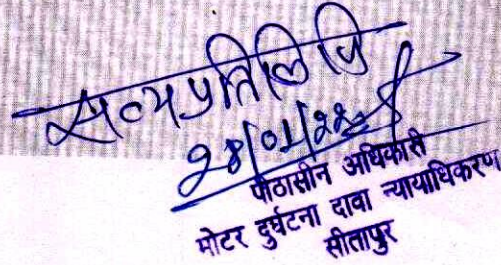 सत्यप्रतिलिपि
पीठासीन अधिकारी
मोटर दुर्घटना दावा न्यायाधिकरण
सीतापुर